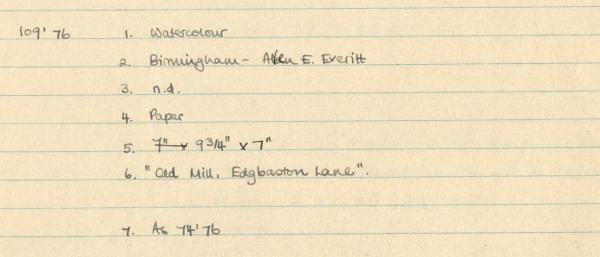 109'76 1. Watercolour
2. Birmingham - Allen E. Everitt
3. n.d.
4. Paper
5. 7" x 9 3/4" x 7"
6. "Old Mill, Edgbaston Lane".
7. As 74'76